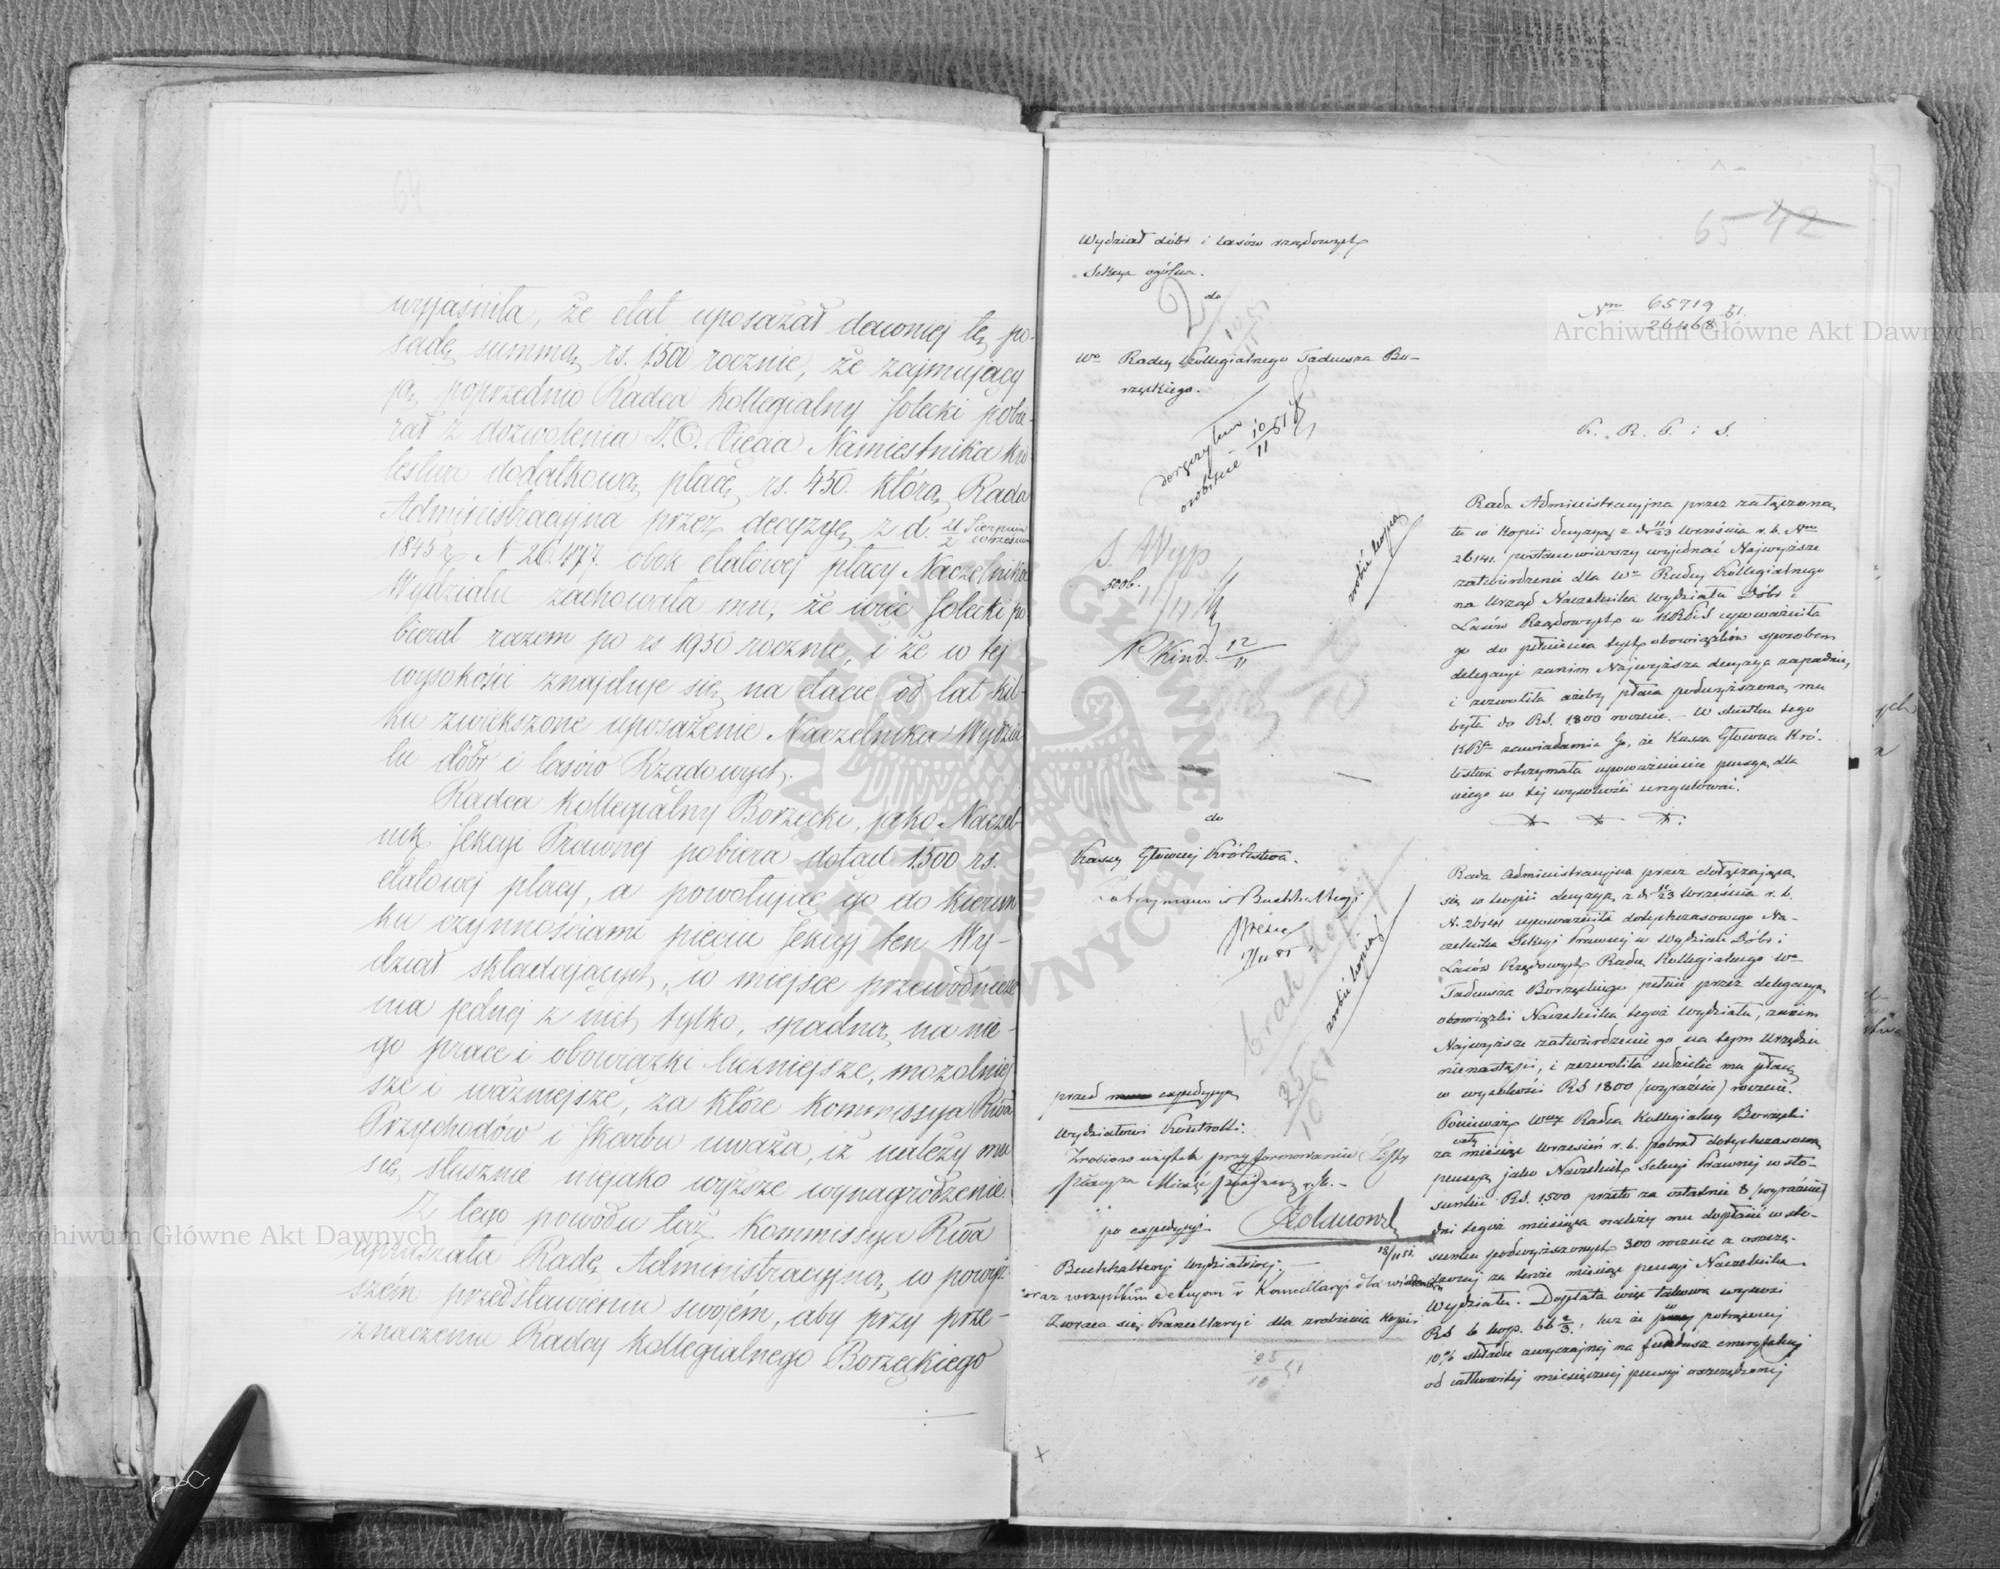 wyjaśniła, że etat uposażał dawniej tę po-
sadę summą rs. 1500 rocznie, że zajmujący
ją poprzednio Radca Kollegialny Solecki pobie-
rał z dozwolenia J. O. Xięcia Namiestnika Kró-
lestwa dodatkową płacę rs. 450. którą Rada
Administracyjna przez decyzyę z d. 21 Sierpnia / 2 Września
1845 r. N 26.477. obok etatowej płacy Naczelnika
Wydziału zachowała mu, że więc Solecki po-
bierał razem po rs 1950 rocznie, i że w tej
wysokości znajduje się na etacie od lat kil-
ku zwiększone uposażenie Naczelnika Wydzia-
łu dóbr i lasów Rządowych.
Radca Kollegialny Borzęcki, jako Naczel-
nik Sekcyi Prawnej pobiera dotąd 1500 rs.
etatowej płacy, a powołując go do kierun-
ku czynnościami pięciu Sekcyj ten Wy-
dział składających, w miejsce przewodnicze-
nia jednej z nich tylko, spadną na nie-
go prace i obowiązki liczniejsze, mozolniej
sze i ważniejsze, za które Kommissya Rwa
Przychodów i Skarbu uważa, iż należy mu
się słusznie niejako wyższe wynagrodzenie.
Z tego powodu taż Kommissya Rwa
upraszała Radę Administracyjną w powyż-
szém przedstawieniu swojém, aby przy prze-
znaczeniu Radcy Kollegialnego Borzęckiego
65 42
Wydział dóbr i lasów rządowych
Sekcya ogólna.
Nro 65719 / 26468 51.
do
Wo Radcy Kollegialnego Tadeusza Bo-
rzęckiego.
doręczyłem
osobiście 10/11 51
K. R. P. i S.
Rada Administracyjna przez załączoną
tu w kopii decyzyą z d. 11/23 Września r. b. Nro
26141. postanowiwszy wyjednać Najwyższe
zatwierdzenie dla Wo Radcy Kollegialnego
na Urząd Naczelnika Wydziału Dóbr i
Lasów Rządowych w KRPiS upoważniła
go do pełnienia tych obowiązków sposobem
delegacyi zanim Najwyższa decyzya zapadnie,
i zezwoliła ażeby płaca podwyższoną mu
była do RS. 1800 rocznie. - W skutku tego
KRa zawiadamia Go, że Kassa Główna Kró-
lestwa otrzymała upoważnienie pensyą dla
niego w tej wysokości uregulować.
zrobić kopią
12/11
do
Kassy Głównej Królestwa.
Zatrzymano w Buchhalteryi
11/11 51
brak kopii
25/10 51
zrobić kopią
Rada Administracyjna przez dołączającą
się w kopii decyzyą z d. 11/23 Września r. b.
N. 26141 upoważniła dotychczasowego Na-
czelnika Sekcyi Prawnej w Wydziale Dóbr i
Lasów Rządowych Radcę Kollegialnego Wo
Tadeusza Borzęckiego pełnić przez delegacyą
obowiązki Naczelnika tegoż Wydziału, zanim
Najwyższe zatwierdzenie go na tym Urzędzie
nienastąpi, i zezwoliła udzielić mu płacę
w wysokości RS 1800 (wyraźnie) rocznie.
Ponieważ Wny Radca Kollegialny Borzęcki
za cały miesiąc Wrzesień r. b. pobrał dotychczasową
pensyą jako Naczelnik Sekcyi Prawnej w sto-
sunku RS. 1500 przeto za ostatnie 8 (wyraźnie)
dni tegoż miesiąca należy mu dopłacić w sto-
sunku podwyższonych 300 rocznie a
za tenże miesiąc pensyi Naczelnika
Wydziału. Dopłata więc takowa wynosi
RS 6 kop. 66 2/3, lecz że w potrąceniu
10% składki zwyczajnej na fundusz emerytalny
od całkowitej miesięcznej pensyi oszczędzonej
przed expedycyą
Wydziałowi Kontrolli.
Zrobiono użytek przy formowaniu Listy
po expedycyi
18/11 51.
Buchhalteryi Wydziałowej.
oraz wszystkim Sekcyom i Kancellaryi dla wiadomości
Zwraca się Kancellaryi dla zrobienia kopii
25/10 51
Archiwum Główne Akt Dawnych
Archiwum Główne Akt Dawnych
ARCHIWUM GŁÓWNE AKT DAWNYCH